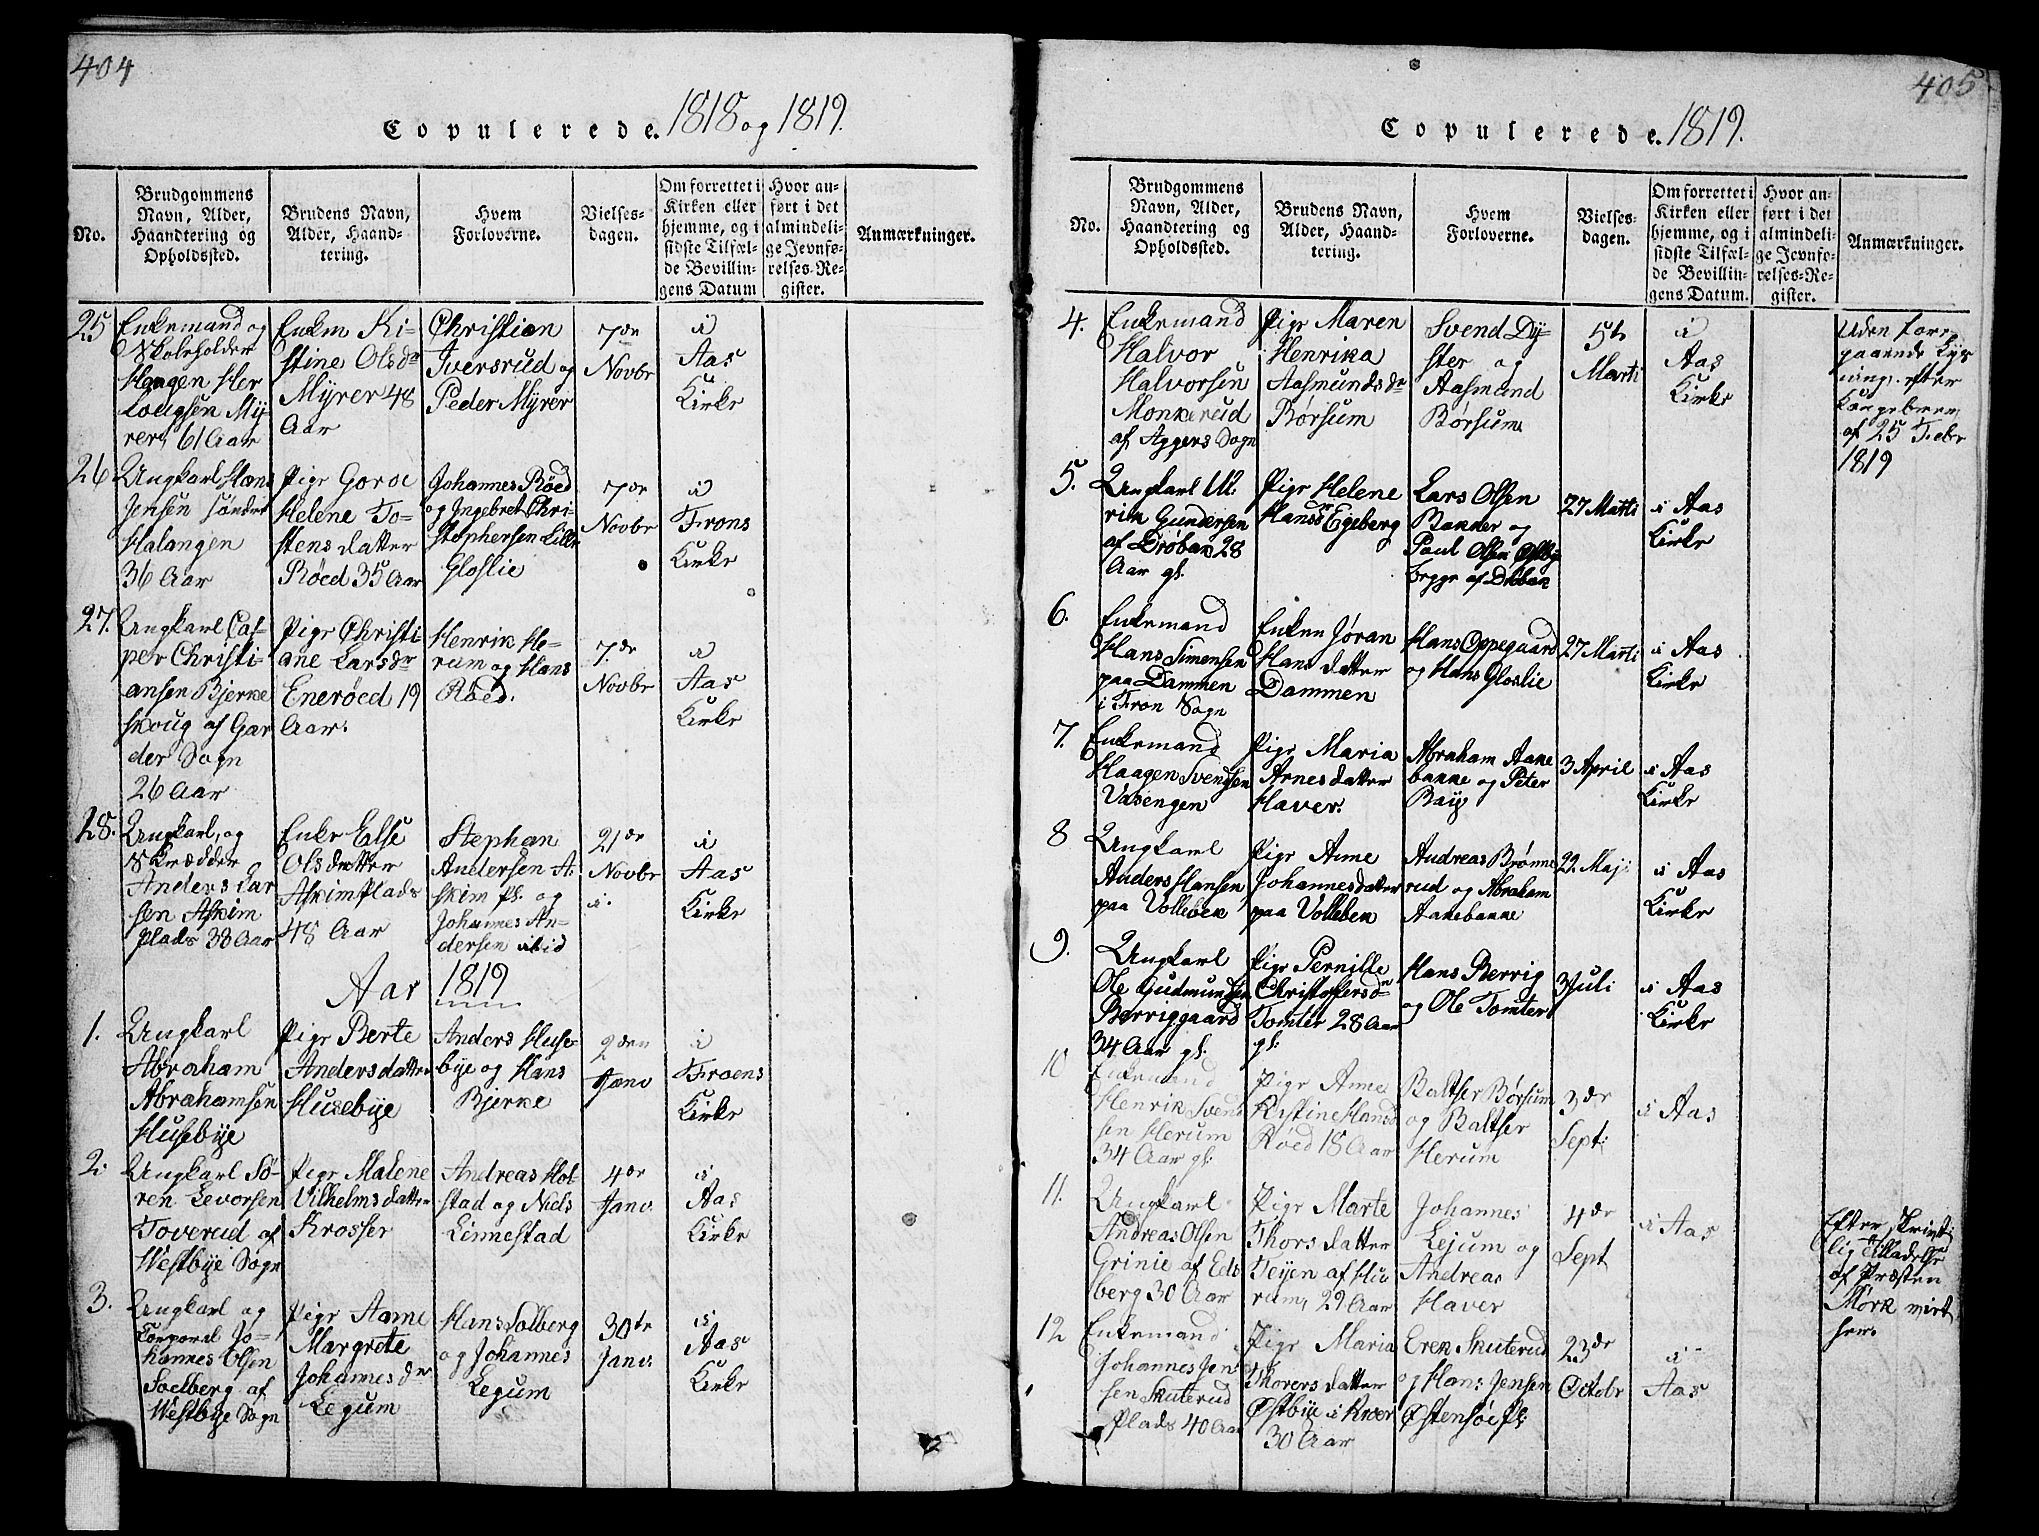 404
Copulerede. 1818 og 1819.
No.
Brudgommens
Navn, Alder,
Haandtering og
Opholdssted.
Brudens Navn,
Alder, Haand-
tering.
Hvem
Forloverne.
Vielses-
dagen.
Om forrettet i
Kirken eller
hjemme, og i
sidste Tilfæl-
de Bevillin-
gens Datum
Hvor an-
ført i det
almindeli-
ge Jevnfø-
relses-Re-
gister.
Anmærkninger.
25
Enkemand og
Skoleholder
Haagen Her
lougsen My
rer, 61 Aar
Enken Ki-
stine Olsdr
Myrer 48
Aar
Christian
Iversrud og
Peder Myrer
7de
Novbr
i
Aas
Kirke
26
Ungkarl Hans
Jensen Søndre
Halangen
36 Aar
Pige Goroe
Helene To-
stensdatter
Røed 35 Aar
Johannes Røed
og Ingebret Chri-
stophersen Lille
Gloslie
7de
Novbr
i
Frons
Kirke
27.
Ungkarl Cas-
per Christi-
ansen Bjerke
skoug af Gar
der Sogn
26 Aar
Pige Christi
ane Larsdr
Enerøed 19
Aar.
Henrik He-
rum og Hans
Røed.
7de
Novbr
i
Aas
Kirke
28.
Ungkarl, og
Skrædder
Anders Lar
sen Askim
Plads 38 Aar
Enke Else
Olsdatter
Askim Plads
48 Aar
Stephan
Andersen A-
skim Pl. og
Johannes An-
dersen ibid
21de
Novbr
i
Aas
Kirke
Aar 1819
1.
Ungkarl
Abraham
Abrahamsen
Husebye
Pige Berte
Andersdatter
Husebye
Anders Huse-
bye og Hans
Bjerke
2den
Janv
i
Froens
Kirke
2.
Ungkarl Sø-
ren Levorsen
Toverud af
Westbye Sogn
Pige Malene
Vilhelmsdatter
Krosser
Andreas Hol-
stad og Niels
Linnestad
4de
Janv.
i
Aas
Kirke
3.
Ungkarl og
Korporal Jo-
hannes Olsen
Soelberg af
Westbye Sogn
Pige Anne
Margrete
Johannesdr
Legum
Hans Solberg
og Johannes
Legum
30te
Janv.
i
Aas
Kirke
405
Copulerede. 1819.
No.
Brudgommens
Navn, Alder,
Haandtering og
Opholdssted.
Brudens Navn,
Alder, Haand-
tering.
Hvem
Forloverne.
Vielses-
dagen.
Om forrettet i
Kirken eller
hjemme, og i
sidste Tilfæl-
de Bevillin-
gens Datum.
Hvor an-
ført i det
almindeli-
ge Jevnfø-
relses-Re-
gister.
Anmærkninger.
4.
Enkemand
Halvor
Halvorsen
Monkerud
af Aggers Sogn
Pige Maren
Henrika
Aasmundsdr
Børsum
Svend Dy-
ster og
Aasmund
Børsum
5te
Marti
i
Aas
Kirke
Uden fore-
gaaende Lys
ning. efter
Kongebrev
af 25 Febr
1819
5.
Ungkarl Ul.
rik Gundersen
af Drøbak 28
Aar gl.
Pige Helene
Hansdr Egeberg
Lars Olsen
Bakker og
Paul Olsen
brygge af Drøbak
27 Marti
i Aas
Kirke
6.
Enkemand
Hans Simensen
paa Dammen
i Fron Sogn
Enken Jøran
Hansdatter
Dammen
Hans Oppegaard
og Hans Gloslie
27 Marti
i Aas
Kirke
7.
Enkemand
Haagen Svendsen
Vasengen
Pige Maria
Arnesdatter
Haver.
Abraham Aane
bakke og Peter
Baye
3 April
i Aas
Kirke
8
Ungkarl
Anders Hansen
paa Vollebek
Pige Anne
Johannesdatter
paa Vollebek
Andreas Brønne
rud og Abraham
Aanebakke
22. Maj
i Aas
Kirke
9.
Ungkarl
Ole Gudmundsen
Berriggaard
34 Aar gl.
Pige Pernille
Christoffersdr
Tomter 28 Aar
gl.
Hans Berrig
og Ole Tomter
3 Juli
i Aas
Kirke
10
Enkemand
Henrik Svend
sen Herum
34 Aar gl.
Pige Anne
Kistine Hansd
Røed 18 Aar
Baltser Børsum
og Baltser
Herum
3de
Sept:
i Aas
11.
Ungkarl
Andreas Olsen
Grinie af Eds
berg 30 Aar
Pige Marte
Thorsdatter
Teyen af Hu
rum, 29 Aar
Johannes
Lejum og
Andreas
Haver
4de
Sept
i Aas
Efter skrivt
lig Tilladelse
af Præsten
Mørk viet
her.
12
Enkemand
Johannes Jen
sen Skuterud
Plads 40 Aar
Pige Maria
Thoresdatter
Østbye i Kraer
30 Aar
Erek Skuterud
og Hans Jensen
Østensøe Pl:
23de
Octobr
i
Aas